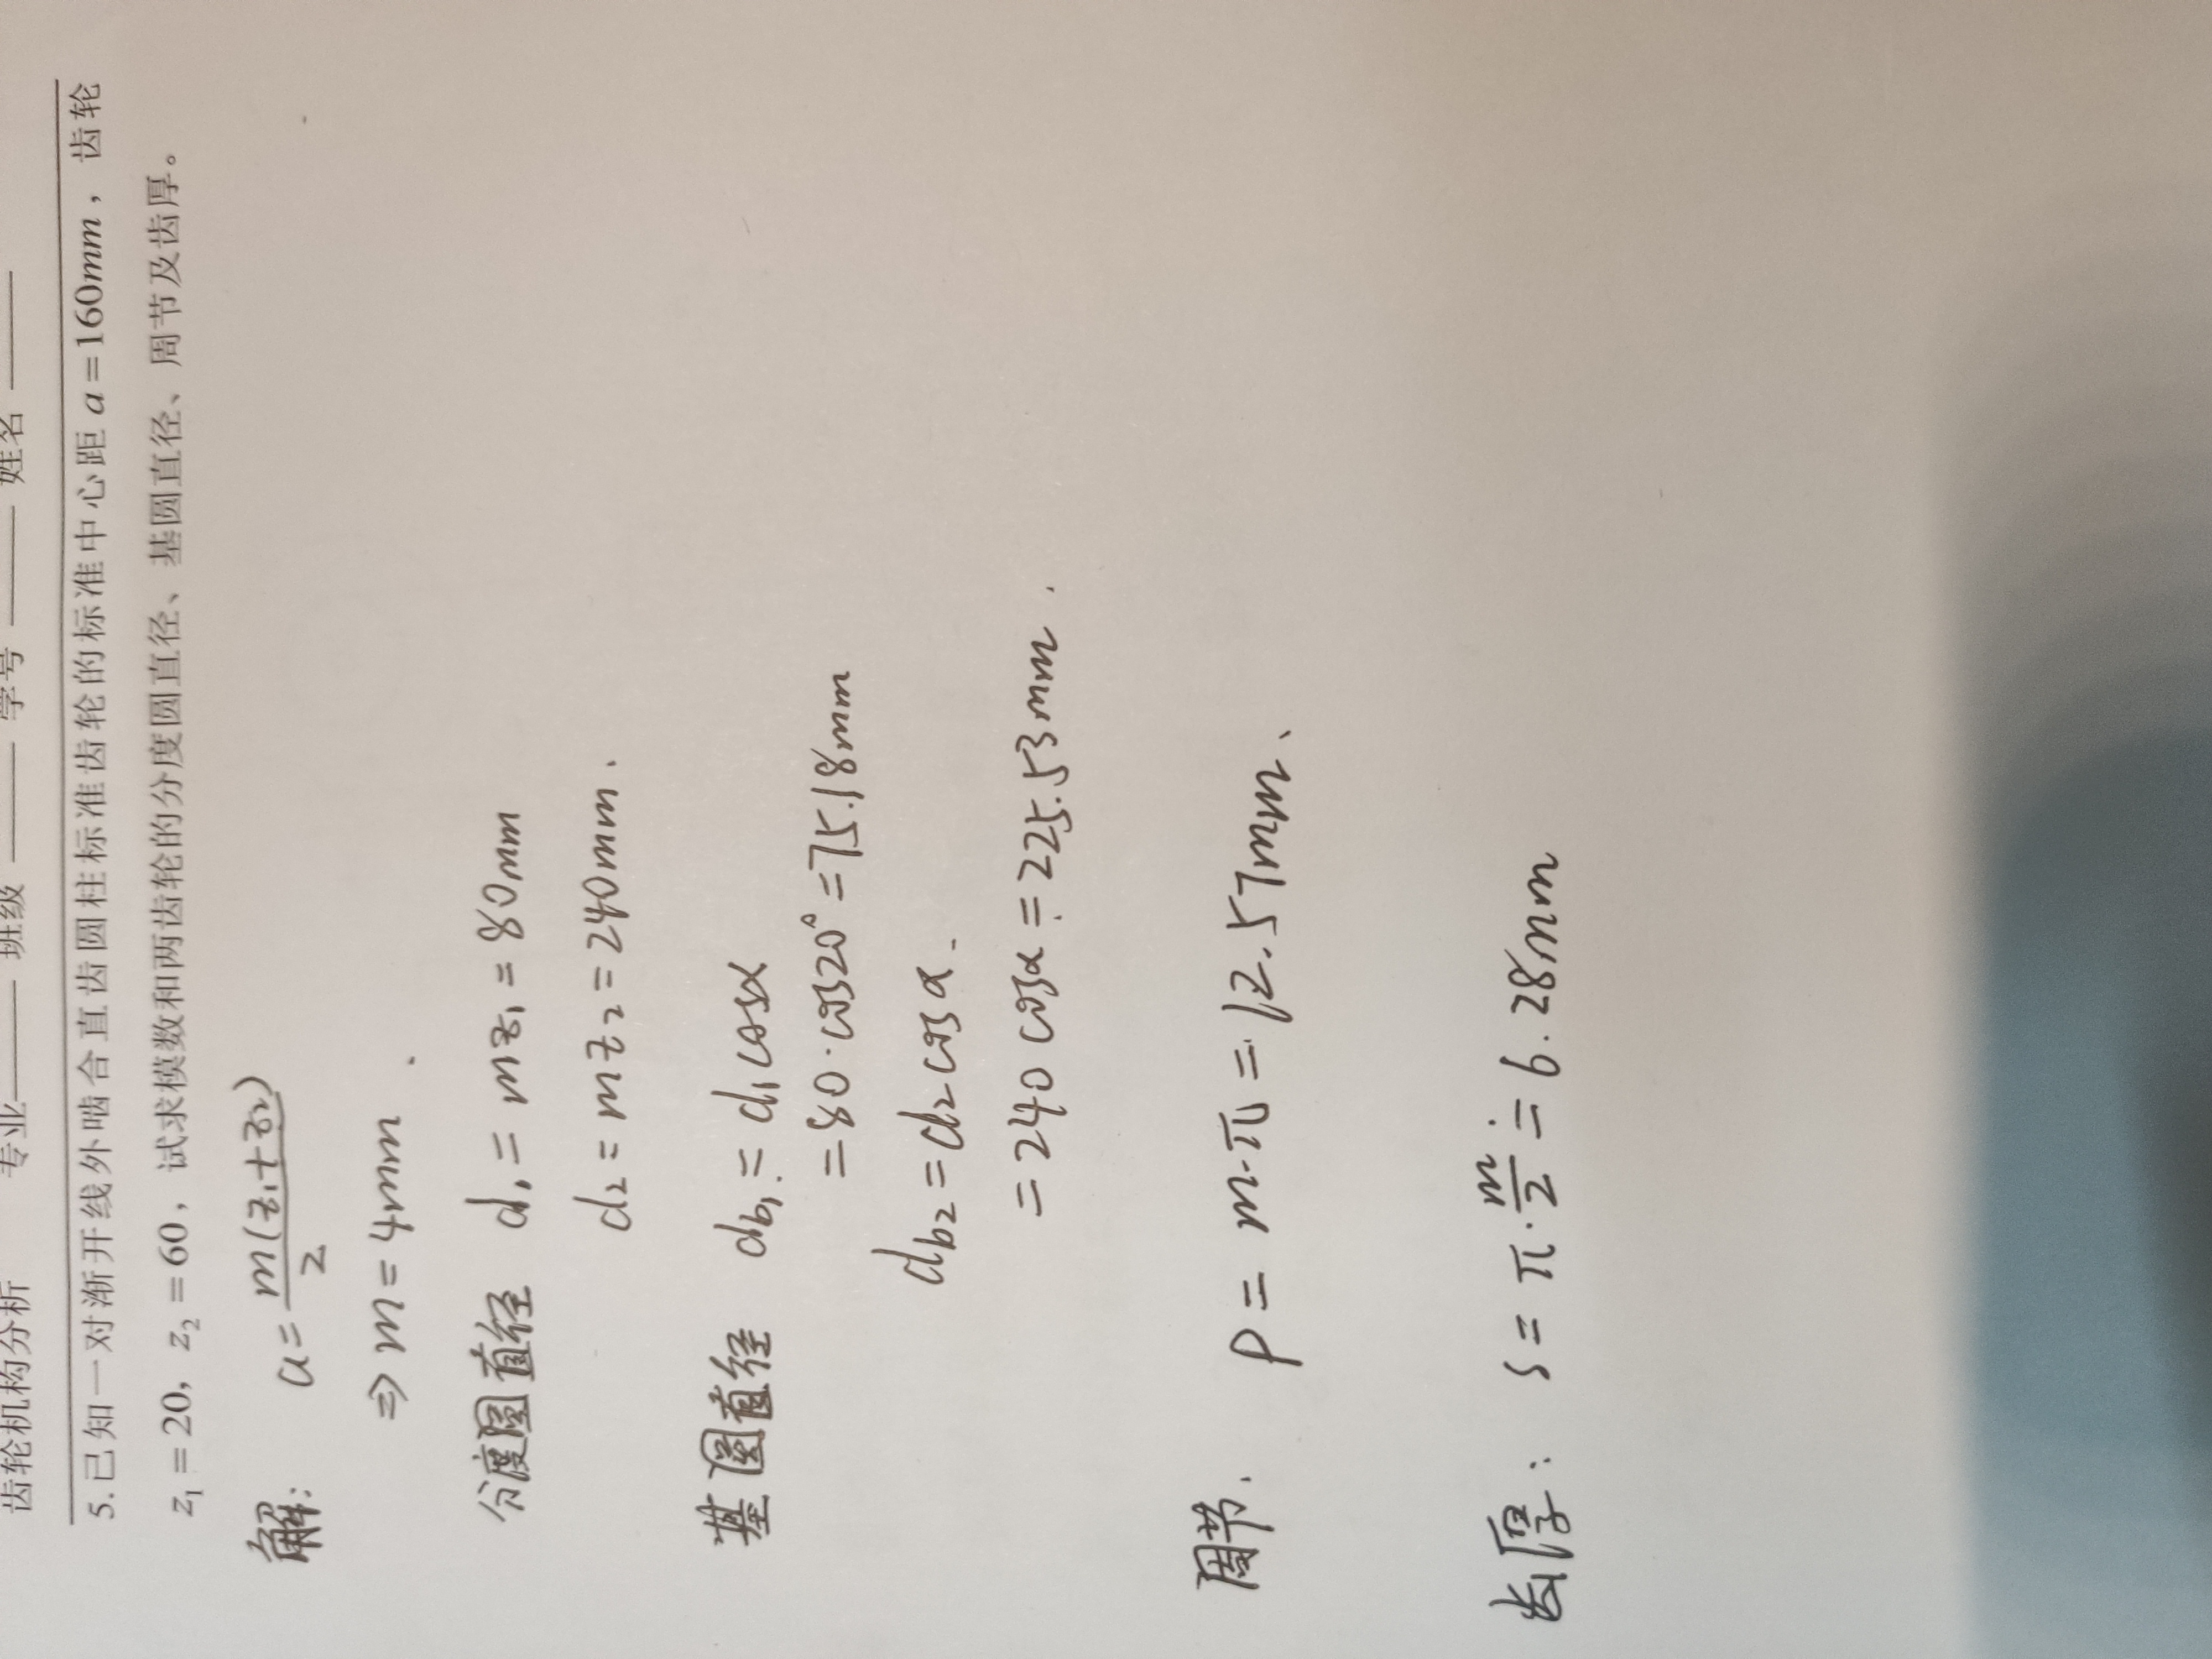 齿轮机构分析 专业——— 班级 ——— 学号 ——— 姓名 ———
5.已知一对渐开线外啮合直齿圆柱标准齿轮的标准中心距 a=160mm，齿轮
z₁=20，z₂=60，试求模数和两齿轮的分度圆直径、基圆直径、周节及齿厚。
解: a=m(z₁+z₂)/2
⇒ m=4mm.
分度圆直径 d₁=mz₁=80mm
d₂=mz₂=240mm.
基圆直径 db₁=d₁cosα
=80·cos20°=75.18mm
db₂=d₂cosα.
=240cosα=225.53mm.
周节. p=m·π=12.57mm、
齿厚: s=π·m/2≐6.28mm